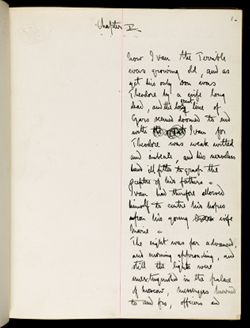 Chapter V
1.
Now Ivan the Terrible
was growing old, and as
yet his only son was
Theodore by a wife long
dead, and the long line of
Czars seemed doomed to end
with Ivan for
Theodore was weak witted
and and his
had ill fitted to grasp the
sceptre of his father.
Ivan had therefore allowed
himself to centre his hopes
upon his young wife
Marie.
The night was far advanced,
and morning approaching, and
still the lights were
unextinguished in the palace
of Moscow, messengers hurried
to and fro, officers and